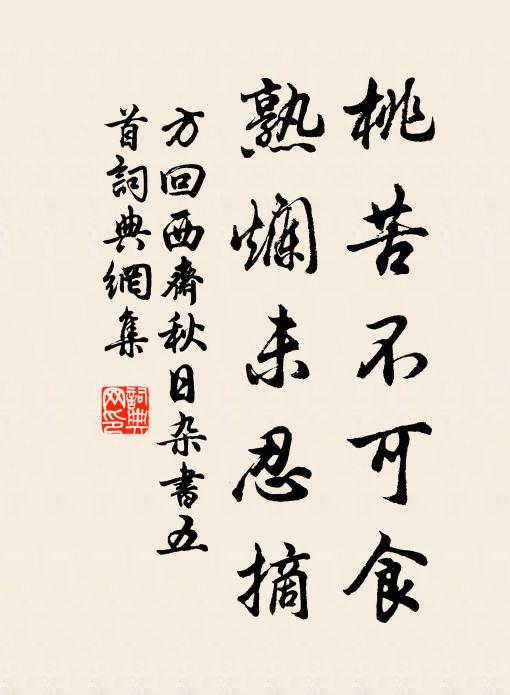 桃苦不可食
熟爛未忍摘
方回西齋秋日杂書五
首詞典網集
詞典
网印